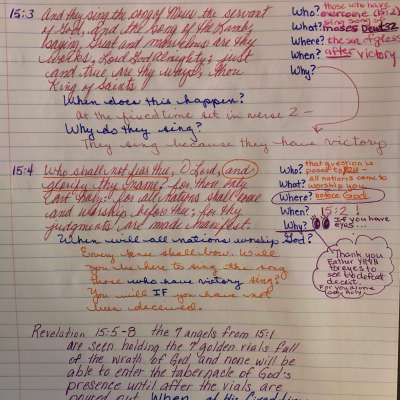 15:3 And they sing the song of Moses the servant
of God, and the song of the Lamb,
saying, Great and marvelous are thy
works, Lord God Almighty; just
and true are thy ways, thou
King of Saints
Who? those who have
overcome (15:2)
What? sing song of
moses Deut 32
Where? the sea of glass
When? after victory
Why?
When does this happen?
at the fixed time set in verse 2
Why do they sing?
They sing because they have victory
15:4 Who shall not fear thee, O Lord, and
glorify thy name? for thou only
art holy: for all nations shall come
and worship before thee; for thy
judgments are made manifest.
Who? that question is
posed to you
What? all nations come to
worship you
Where? before God
When? 15:2
Why? If you have
eyes...
When will all nations worship God?
Every knee shall bow. Will
you be here to sing the song
those who have victory sing?
You will IF you have not
been deceived.
Thank you
Father YHVH
for eyes to
see to defeat
deceit.
For you alone
are holy.
Revelation 15:5-8 the 7 angels from 15:1
are seen holding the 7 golden vials full
of the wrath of God, and none will be
able to enter the tabernacle of God's
presence until after the vials are
poured out. When